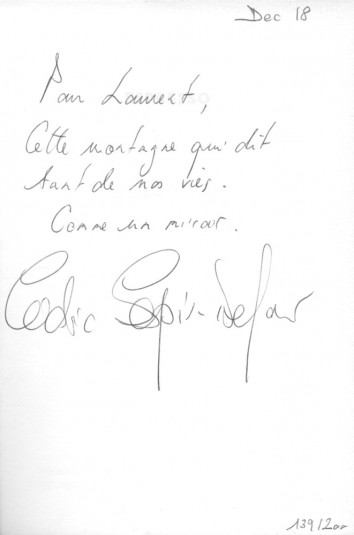 Dec 18
Pour Laurent,
Cette montagne qui dit
tant de nos vies.
Comme un miroir.
Cédric Sapin-Defour
139/200